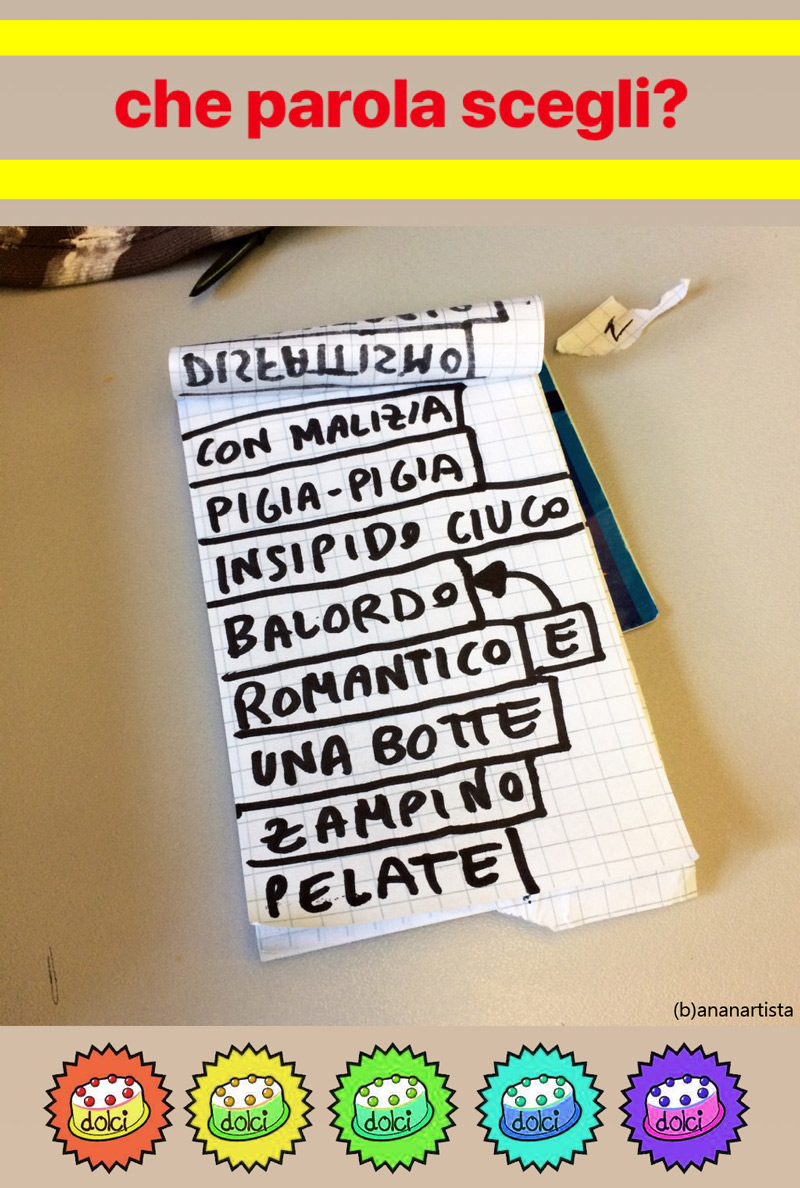 che parola scegli?
DISFATTISMO
CON MALIZIA
PIGIA-PIGIA
INSIPIDO CIUCO
BALORDO
ROMANTICO E
UNA BOTTE
ZAMPINO
PELATE
(b)ananartista
dolci dolci dolci dolci dolci